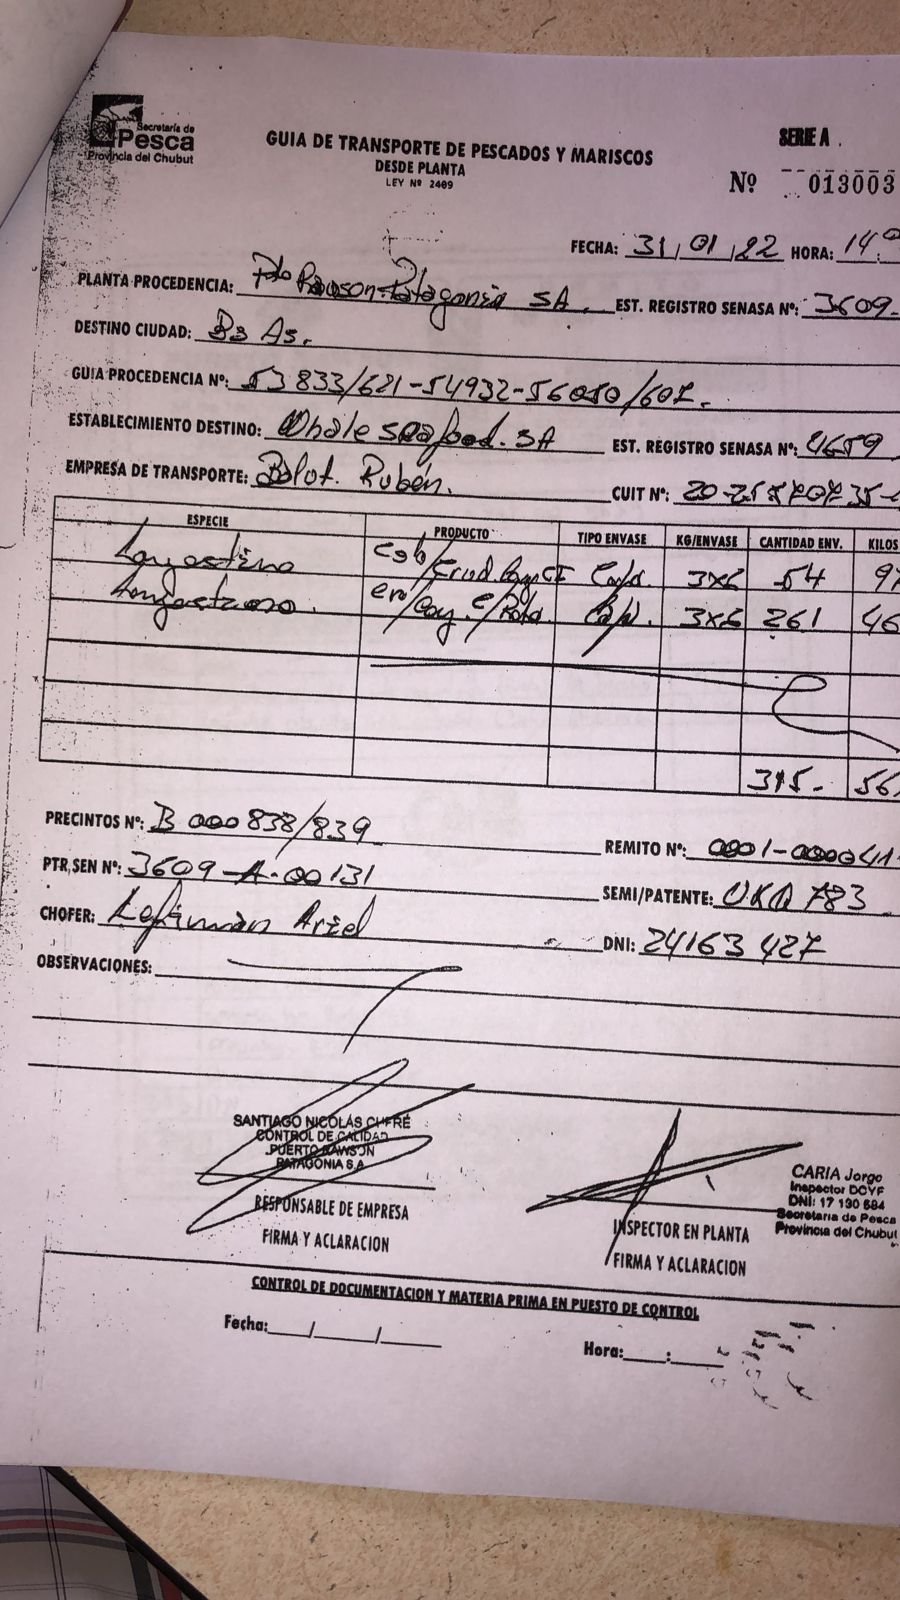 Secretaría de
Pesca
Provincia del Chubut
GUIA DE TRANSPORTE DE PESCADOS Y MARISCOS
DESDE PLANTA
LEY Nº 2409
SERIE A
Nº 013003
FECHA: 31/01/22 HORA: 14
PLANTA PROCEDENCIA: Pto Rawson Patagonia SA. EST. REGISTRO SENASA Nº: 3609-
DESTINO CIUDAD: Bs As.
GUIA PROCEDENCIA Nº: 53833/621-54932-56050/601.
ESTABLECIMIENTO DESTINO: Whale seafood. SA EST. REGISTRO SENASA Nº: 4659
EMPRESA DE TRANSPORTE: Rubén. CUIT Nº:
ESPECIE PRODUCTO TIPO ENVASE KG/ENVASE CANTIDAD ENV. KILOS
Langostino 3x6 54 97
Langostino. 3x6 261 46
315.- 56
PRECINTOS Nº: B 000838/839 REMITO Nº: 0001-0000411
PTR,SEN Nº: 3609-A-00131 SEMI/PATENTE: 783.
CHOFER: Ariel DNI: 24163427
OBSERVACIONES:
SANTIAGO NICOLÁS
CONTROL DE CALIDAD
PUERTO RAWSON
PATAGONIA S.A.
RESPONSABLE DE EMPRESA
FIRMA Y ACLARACION
CARIA Jorge
Inspector DCYF
DNI: 17 130 684
Secretaría de Pesca
Provincia del Chubut
INSPECTOR EN PLANTA
FIRMA Y ACLARACION
CONTROL DE DOCUMENTACION Y MATERIA PRIMA EN PUESTO DE CONTROL
Fecha:___/___/___ Hora:___:___